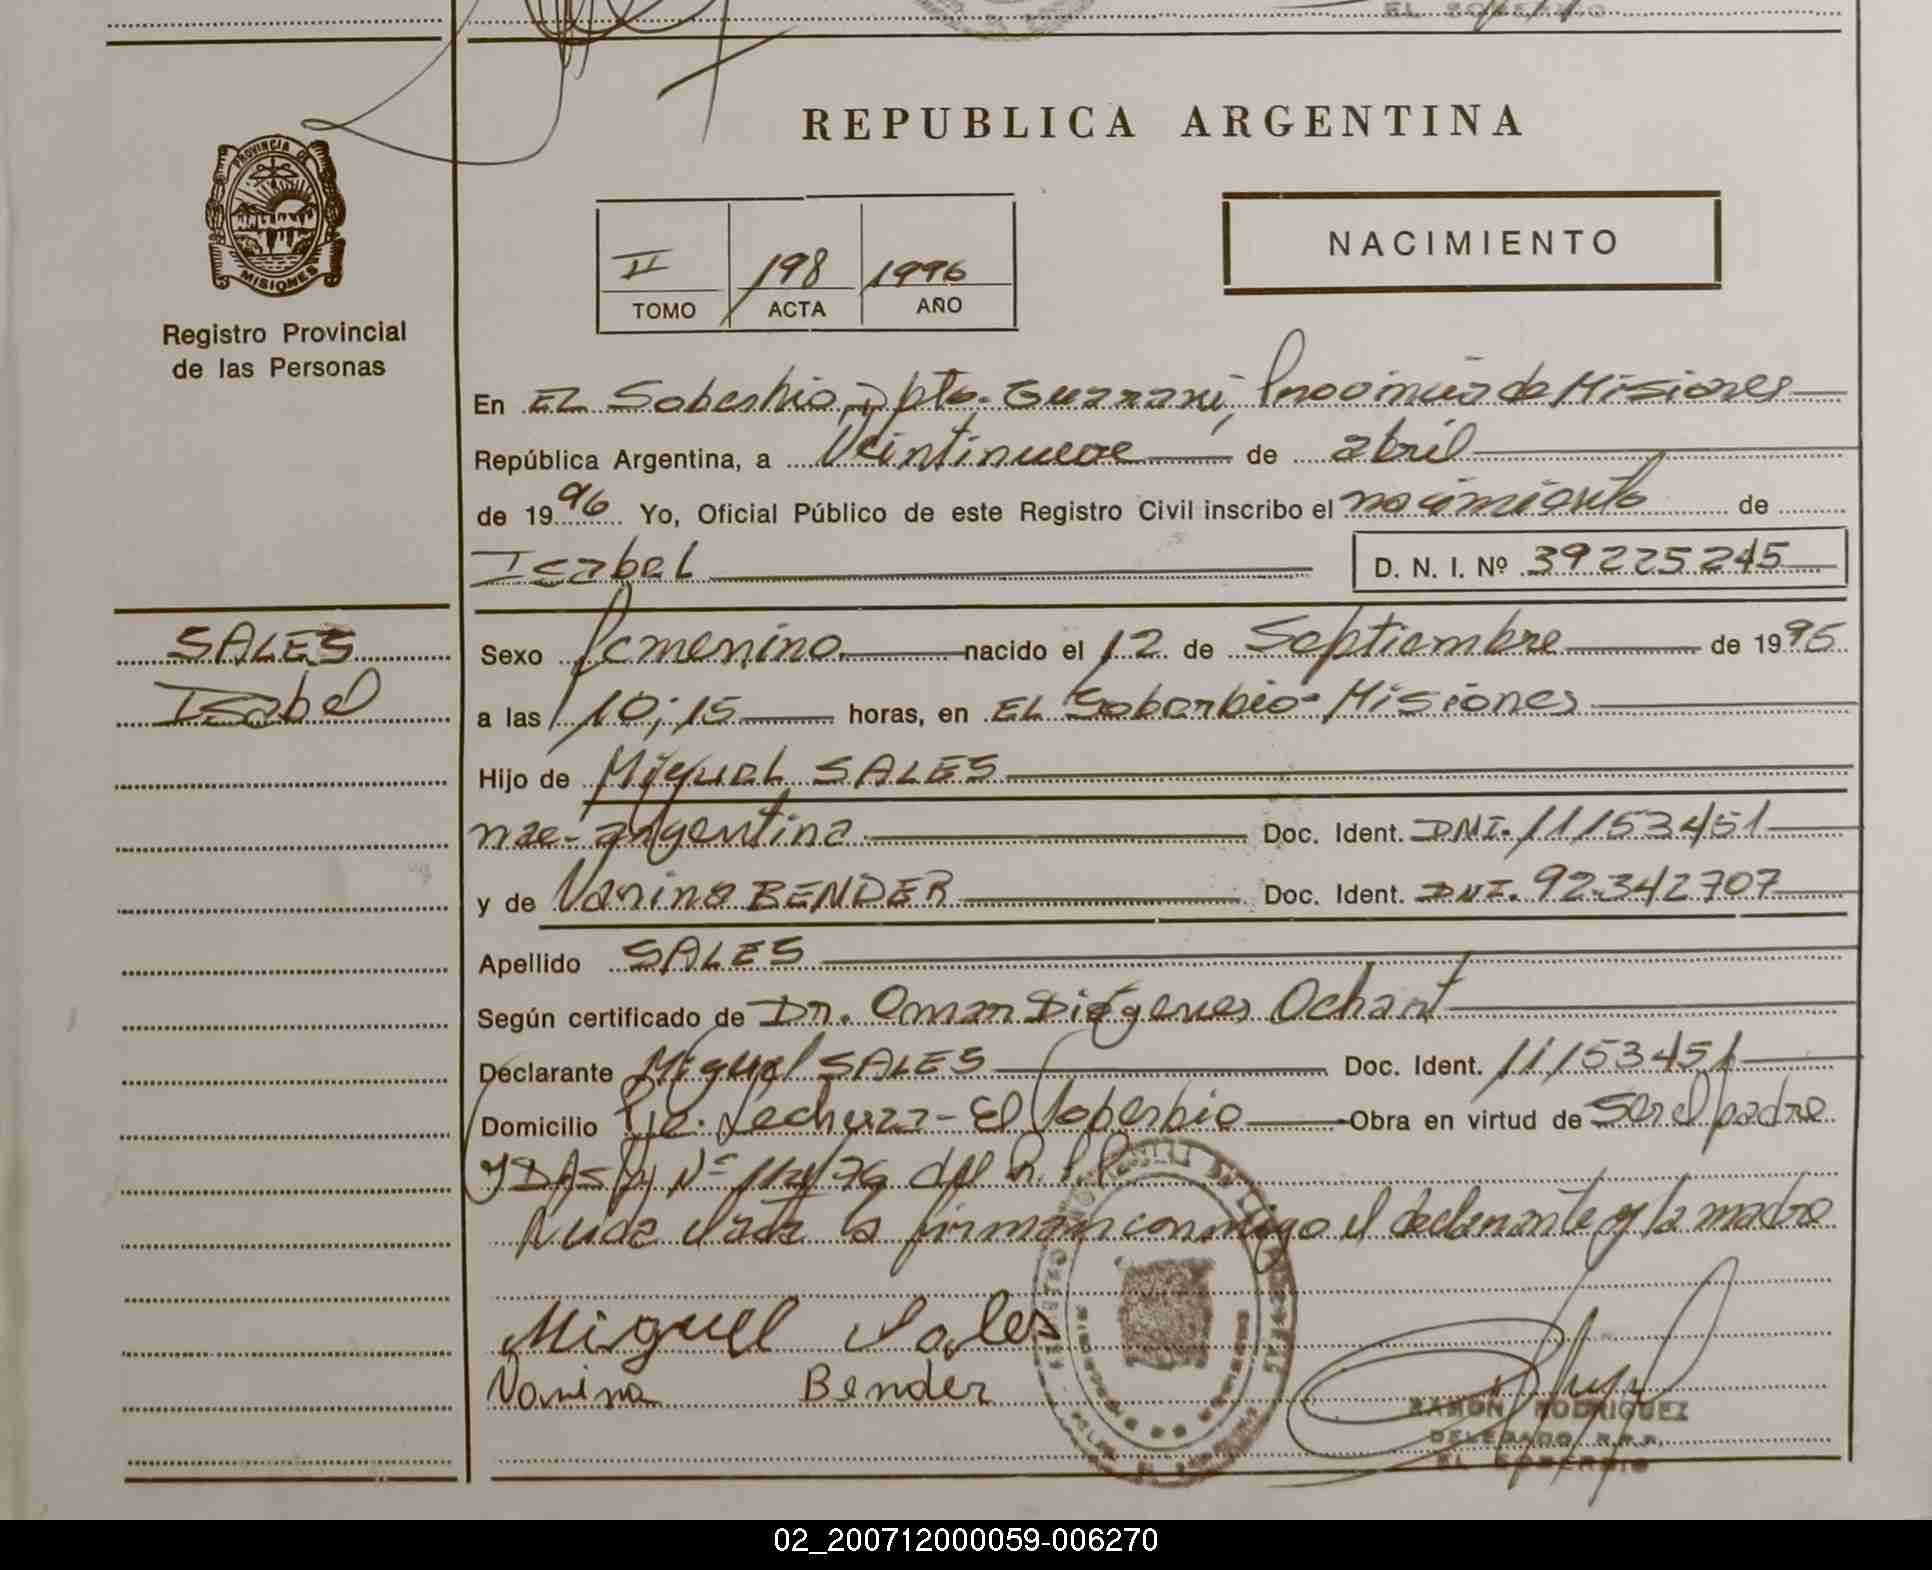 EL SOBERBIO
REPUBLICA ARGENTINA
PROVINCIA DE
MISIONES
Registro Provincial
de las Personas
II 198 1996
TOMO ACTA AÑO
NACIMIENTO
En EL Soberbio, Dpto. Guarani, Provincia de Misiones
República Argentina, a Veintinueve de abril
de 1996 Yo, Oficial Público de este Registro Civil inscribo el nacimiento de
Isabel D. N. I. Nº 39225245
SALES
Isabel
Sexo femenino nacido el 12 de Septiembre de 1995
a las 10;15 horas, en EL Soberbio-Misiones
Hijo de Miguel SALES
nac-argentina Doc. Ident. DNI. 11153451
y de Vanina BENDER Doc. Ident. DNI. 92342707
Apellido SALES
Según certificado de Dr. Omar Diógenes Ochant
Declarante Miguel SALES Doc. Ident. 11153451
Domicilio Pje. Lechuza-El Soberbio Obra en virtud de Ser el padre
del R.P.P.
Leida el acta la firman conmigo el declarante y la madre
Miguel Sales
Vanina Bender
RAMON RODRIGUEZ
DELEGADO R.P.P.
EL SOBERBIO
02_200712000059-006270